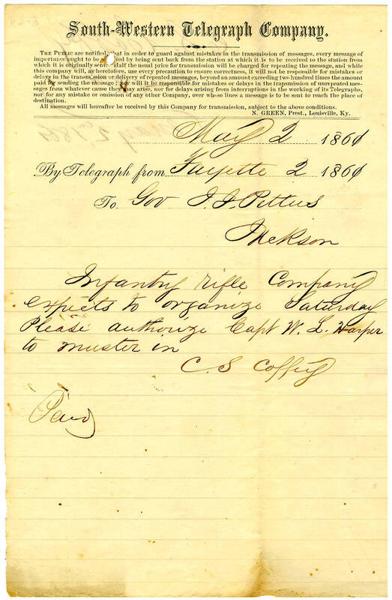 South-Western Telegraph Company.
THE PUBLIC are notified, that in order to guard against mistakes in the transmission of messages, every message of
importance ought to be repeated by being sent back from the station at which it is to be received to the station from
which it is originally sent. Half the usual price for transmission will be charged for repeating the message, and while
this company will, as heretofore, use every precaution to ensure correctness, it will not be responsible for mistakes or
delays in the transmission or delivery of repeated messages, beyond an amount exceeding two hundred times the amount
paid for sending the message; nor will it be responsible for mistakes or delays in the transmission of unrepeated mes-
sages from whatever cause they may arise, nor for delays arising from interruptions in the working of its Telegraphs,
nor for any mistake or omission of any other Company, over whose lines a message is to be sent to reach the place of
destination.
All messages will hereafter be received by this Company for transmission, subject to the above conditions.
N. GREEN, Prest., Louisville, Ky.
May 2 1861
By Telegraph from Fayette 2 1861
To Gov J. J. Pettus
Jackson
Infantry rifle Company
expects to organize Saturday
Please authorize Capt W. L. Harper
to muster in
C. S Coffey
Paid